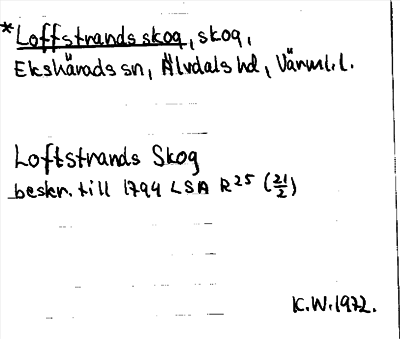 *Loffstrands skog, skog,
Ekshärads sn, Älvdals hd, Värml. l.
Loftstrands Skog
beskr. till 1794 LSA R25 (21/2)
K.W. 1972.